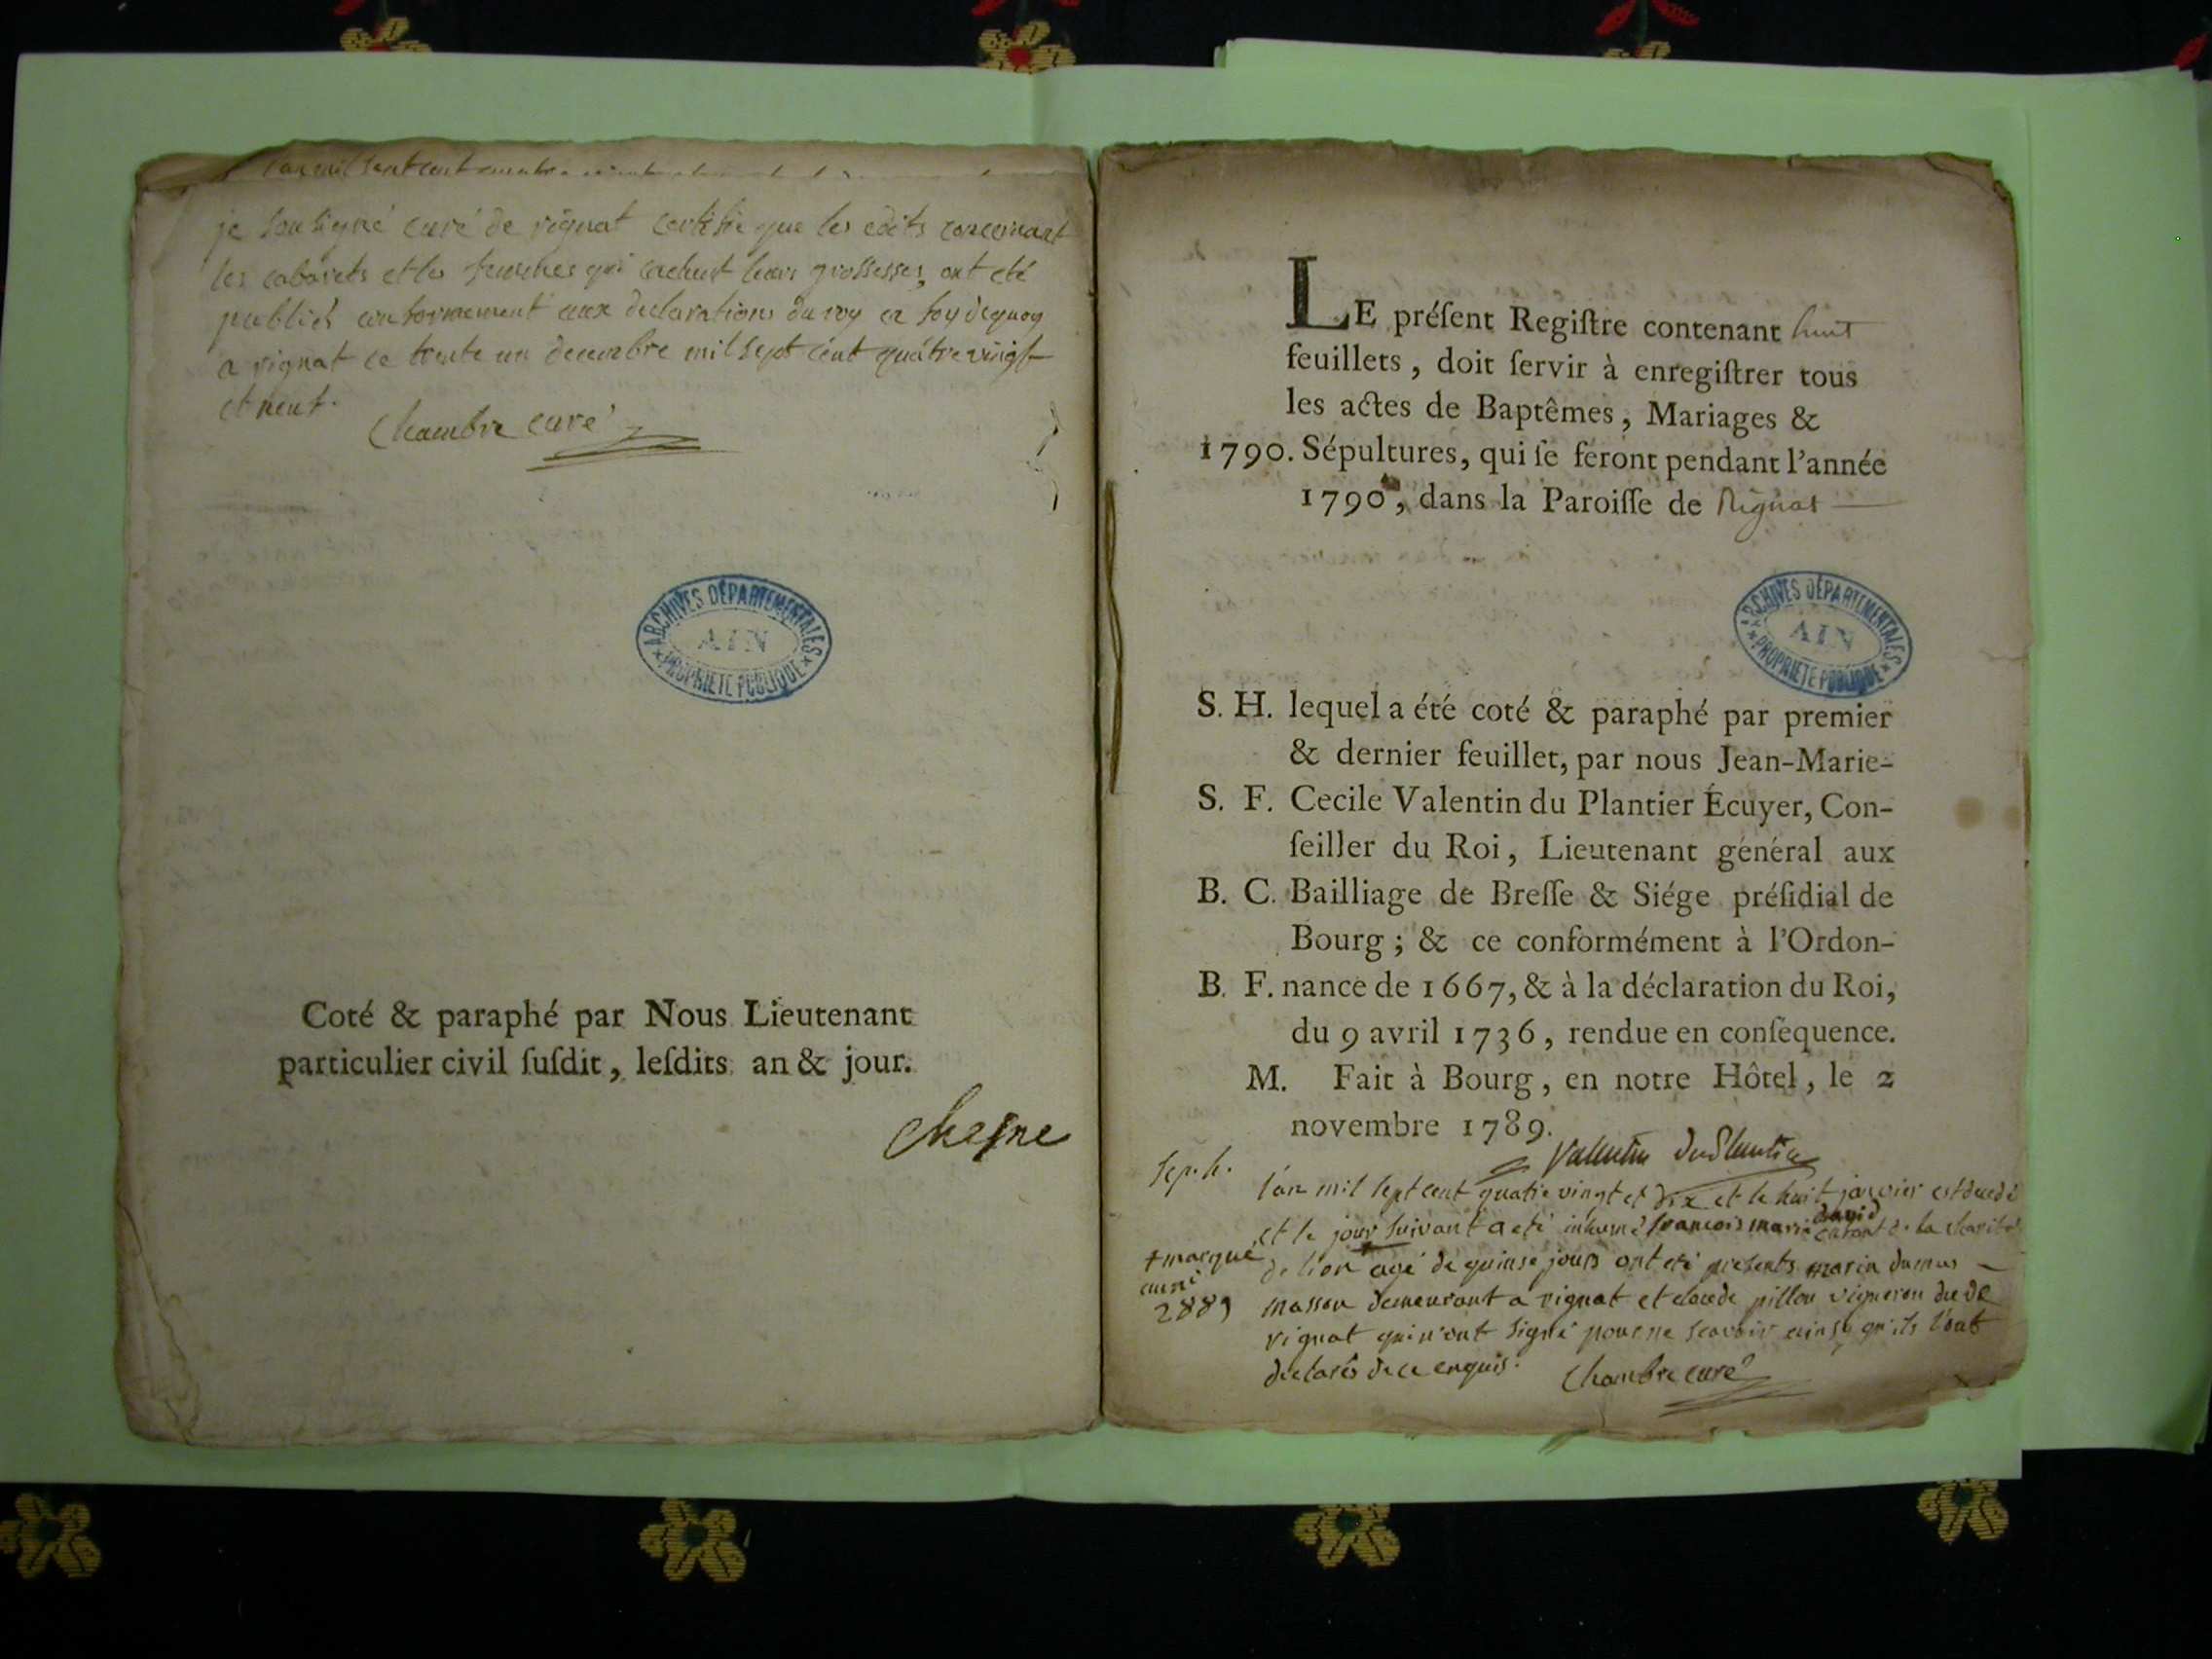 je soussigné curé de rignat certifie que les edits concernant
les cabarets et les femmes qui cachent leurs grossesses, ont eté
publiés conformement aux declarations du roy en foy dequoy
a rignat ce trente un decembre mil sept cent quâtre vingt
et neuf.
Chambre curé
ARCHIVES DÉPARTEMENTALES
AIN
PROPRIÉTÉ PUBLIQUE
Coté & paraphé par Nous Lieutenant
particulier civil ſuſdit, leſdits an & jour.
LE préſent Regiſtre contenant huit
feuillets, doit ſervir à enregiſtrer tous
les actes de Baptêmes, Mariages &
1790. Sépultures, qui ſe feront pendant l'année
1790, dans la Paroiſſe de Rignat
ARCHIVES DÉPARTEMENTALES
AIN
PROPRIÉTÉ PUBLIQUE
S. H. lequel a été coté & paraphé par premier
& dernier feuillet, par nous Jean-Marie-
S. F. Cecile Valentin du Plantier Écuyer, Con-
ſeiller du Roi, Lieutenant général aux
B. C. Bailliage de Breſſe & Siége préſidial de
Bourg; & ce conformément à l'Ordon-
B. F. nance de 1667, & à la déclaration du Roi,
du 9 avril 1736, rendue en conſéquence.
M. Fait à Bourg, en notre Hôtel, le 2
novembre 1789.
Valentin DuPlantier
Sep. h.
l'an mil sept cent quatre vingt et dix et le huit janvier est decedé
et le jour suivant a eté inhumé francois marie david enfant de la charité
+ marqué
2889
de lion agé de quinse jours ont eté presents marin dumas
masson demeurant a rignat et claude pillon vigneron du de
rignat qui n'ont signé pour ne scavoir ainsy qu'ils l'ont
declarés de ce enquis. Chambre curé